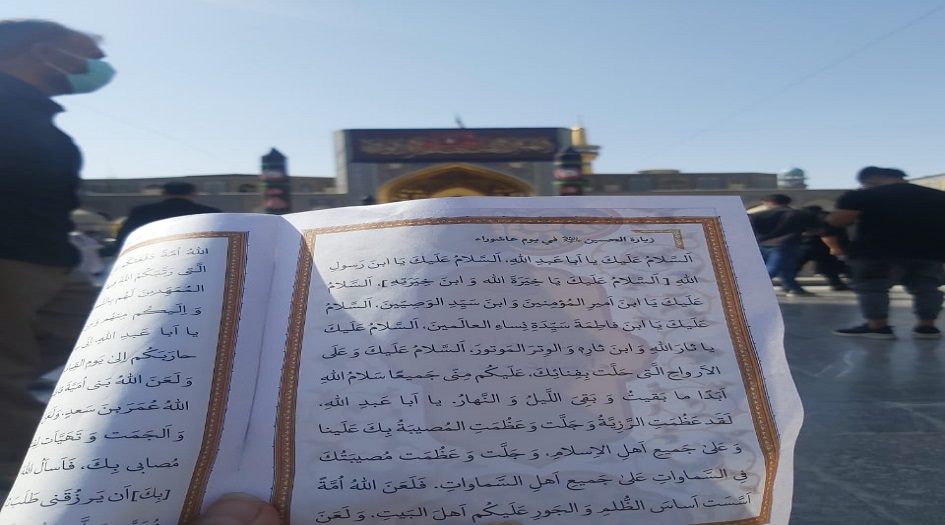 زيارة الحسين في يوم عاشوراء
اَلسَّلامُ عَلَيكَ يا اَبا عَبدِ اللهِ، اَلسَّلامُ عَلَيكَ يَا ابنَ رَسولِ
اللهِ [اَلسَّلامُ عَلَيكَ يَا خِيَرَةَ اللهِ وَ ابنَ خِيَرَتِهِ]، اَلسَّلامُ
عَلَيكَ يَا ابنَ اَميرِ المُؤمِنينَ وَ ابنَ سَيِّدِ الوَصِيّينَ، اَلسَّلامُ
عَلَيكَ يَا ابنَ فاطِمَةَ سَيِّدَةِ نِساءِ العالَمينَ، اَلسَّلامُ عَلَيكَ
يا ثارَ اللهِ وَ ابنَ ثارِهِ وَ الوِترَ المَوتورَ، اَلسَّلامُ عَلَيكَ وَ عَلَى
الاَرواحِ الَّتي حَلَّت بِفِنائِكَ، عَلَيكُم مِنّي جَميعًا سَلامُ اللهِ
اَبَدًا ما بَقيتُ وَ بَقِيَ اللَّيلُ وَ النَّهارُ. يا اَبا عَبدِ اللهِ،
لَقَد عَظُمَتِ الرَّزِيَّةُ وَ جَلَّت وَ عَظُمَتِ المُصيبَةُ بِكَ عَلَينا
وَ عَلىٰ جَميعِ اَهلِ الاِسلامِ، وَ جَلَّت وَ عَظُمَت مُصيبَتُكَ
فِي السَّماواتِ عَلىٰ جَميعِ اَهلِ السَّماواتِ. فَلَعَنَ اللهُ اُمَّةً
اَسَّسَت اَساسَ الظُّلمِ وَ الجَورِ عَلَيكُم اَهلَ البَيتِ، وَ لَعَنَ
اللهُ اُمَّةً دَفَعَتكُم
الَّتي رَتَّبَكُمُ اللهُ
المُمَهِّدينَ لَهُم
وَ اِلَيكُم مِنهُم
يا اَبا عَبدِ اللهِ
حارَبَكُم اِلىٰ يَومِ
وَ لَعَنَ اللهُ بَني اُمَيَّةَ
اللهُ عُمَرَ بنَ سَعدٍ، وَ
وَ اَلجَمَت وَ تَهَيَّأَت
مُصابي بِكَ، فَاَسأَلُ اللهَ
[بِكَ] اَن يَرزُقَني طَلَبَ